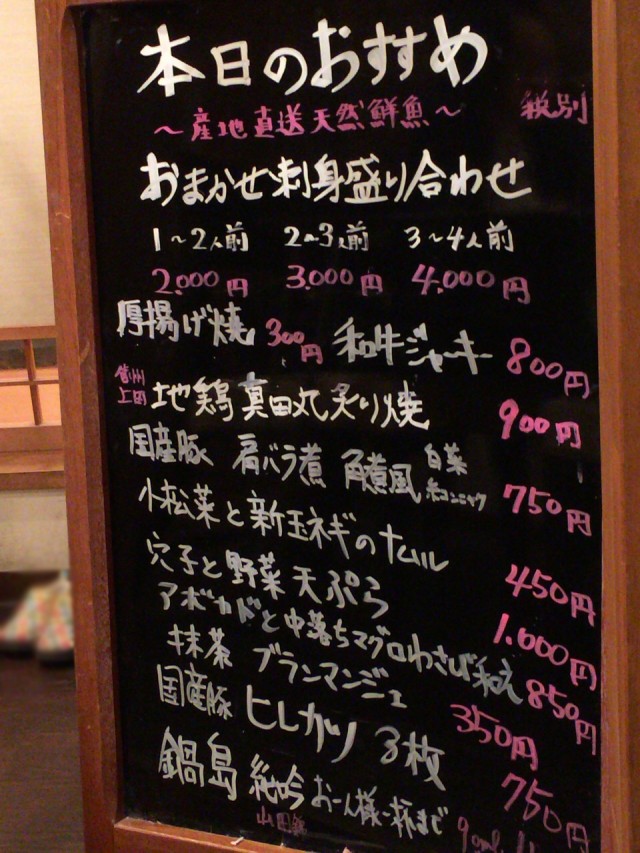 本日のおすすめ
～産地直送天然鮮魚～ 税別
おまかせ刺身盛り合わせ
1～2人前 2～3人前 3～4人前
2,000円 3,000円 4,000円
厚揚げ焼 300円 和牛ジャーキー 800円
信州上田 地鶏真田丸炙り焼 900円
国産豚 肩バラ煮 角煮風 白菜 糸コンニャク 750円
小松菜と新玉ネギのナムル 450円
穴子と野菜天ぷら 1.000円
アボカドと中落ちマグロわさび和え 850円
抹茶 ブランマンジェ 350円
国産豚 ヒレカツ 3枚 750円
鍋島 純吟 お一人様一杯まで
山田錦